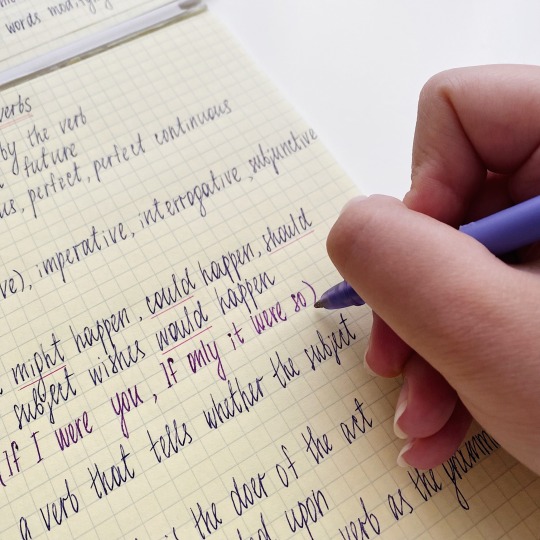 words modifying
verbs
by the verb
future
us, perfect, perfect continuous
ve), imperative, interrogative, subjunctive
might happen, could happen, should
subject wishes would happen
(If I were you, If only it were so)
a verb that tells whether the subject
is the doer of the act
upon
verb as the